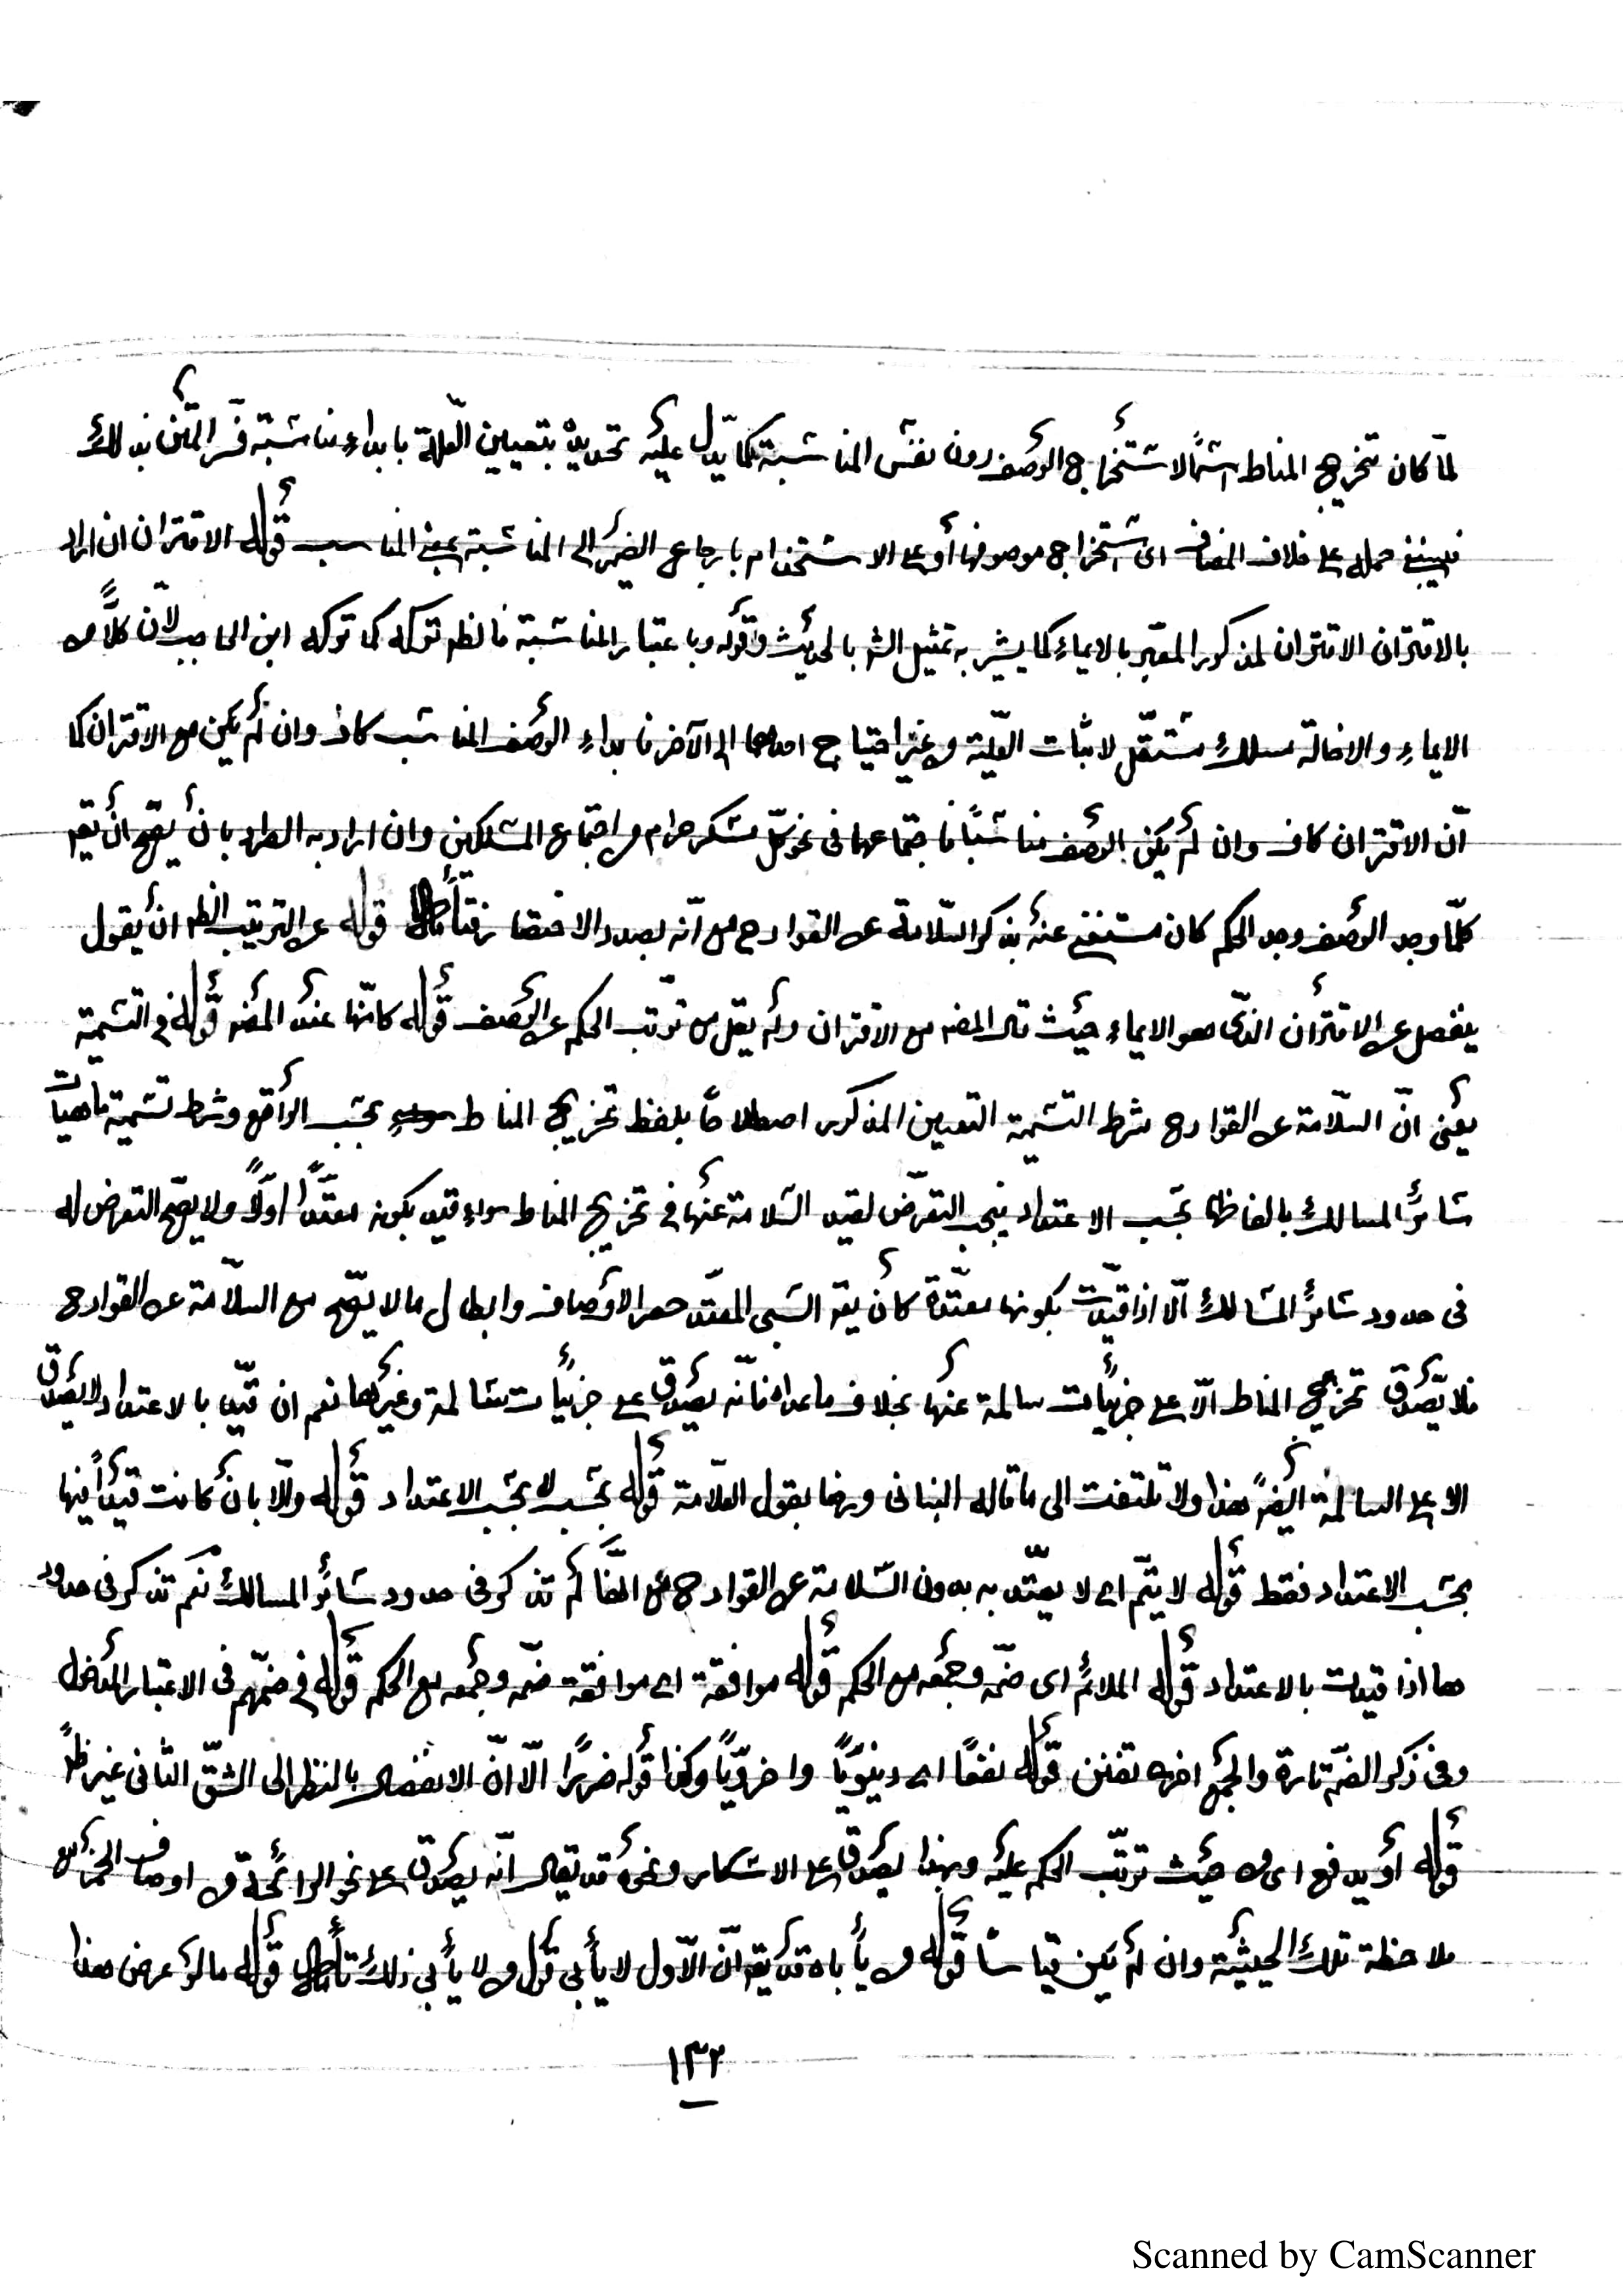 لمّا كان تخريج المناط اسمًا لاستخراج الوصف دون نفس المناسبة كما يدل عليه تحديده بتعيين العلة بابداء مناسبة فسر المتن بذلك
فينبغي حمله على حذف المضاف اى استخراج موصوفها أو على الاستخدام بارجاع الضمير الى المناسبة بمعنى المناسب قوله الاقتران ان اراد
بالاقتران الاقتران المذكور المعتبر بالايماء كما يشير به تمثيل الش بالحديث وقوله وباعتبار المناسبة فالظ تركه كما تركه ابن الحاجب لأن كلًّا من
الايماء والاخالة مسلك مستقل لاثبات العلية من غير احتياج احدهما الى الآخر فابداء الوصف المناسب كاف وان لم يكن مع الاقتران كما
أنّ الاقتران كاف وان لم يكن الوصف مناسبًا فاجتماعهما فى نحو كل مسكر حرام من اجتماع المسلكين وان اراد به الطرد بأن يصح أن يق
كلّما وجد الوصف وجد الحكم كان مستغنى عنه بذكر السّلامة عن القوادح مع أنّه بصدد الاختصار فتأمل قوله عن الترتيب الظ ان يقول
ينفصل عن الاقتران الذى هو الايماء حيث قال المص مع الاقتران ولم يقل مع ترتب الحكم على الوصف قوله كانّها عند المص قوله فى التسمية
يعنى انّ السّلامة عن القوادح شرط لتسمية التعيين المذكور اصطلاحًا بلفظ تخريج المناط بحسب الواقع وشرط تسمية ماهيات
سائر المسالك بالفاظها بحسب الاعتداد فيجب التعرّض لقيد السّلامة عنها فى تخريج المناط سواء قيد بكونه معتدًّا اوّلًا ولا يصح التعرض له
فى حدود سائر المسالك الّا اذا قيّدت بكونها معتدّة كأن يق السبر المعتد حصر الاوصاف وابطال ما لا يصّح مع السّلامة عن القوادح
فلا يصدق تخريج المناط الّا على جزئيّات سالمة عنها بخلاف ما عداه فانّه يصدق على جزئيات سالمة وغيرها نعم ان قيّد بالاعتداد لا يصدق
الا على السالمة ايضًا هذا ولا تلتفت الى ما قاله البنانى وبقول العلامة قوله بحسب لا بحسب الاعتداد قوله والّا بأن كانت قيدًا فيها
بحسب الاعتداد فقط قوله لا يتم اى لا يعتد به بدون السّلامة عن القوادح مع انّها لم تذكر فى حدود سائر المسالك نعم تذكر فى حدود
ها اذا قيدت بالاعتداد قوله الملائم اى ضمّه وجمعه مع الحكم قوله موافقة اى موافقة ضمّه وجمعه مع الحكم قوله فى ضمهم فى الاعتبار
وفى ذكر الضمّ تارة والجمع اخرى تفنن قوله نفعًا اى دنيويًّا واخرويًّا وكذا قوله ضررًا الّا انّ الانفصال بالنظر الى الشّق الثانى غير ظ
قوله أو يدفع اى من حيث ترتّب الحكم عليه وبهذا يصدق على الاسكار ونحوه قد يقال انّه يصدق على نحو الرائحة من اوصاف الخمر مع
ملاحظة تلك الحيثية وان لم يكن قياسًا قوله من يأباه قد يق انّ الاوّل لا يأبى قول من لا يأبى ذلك تأمل قوله ما لو عرض هذا
١٣٢
Scanned by CamScanner